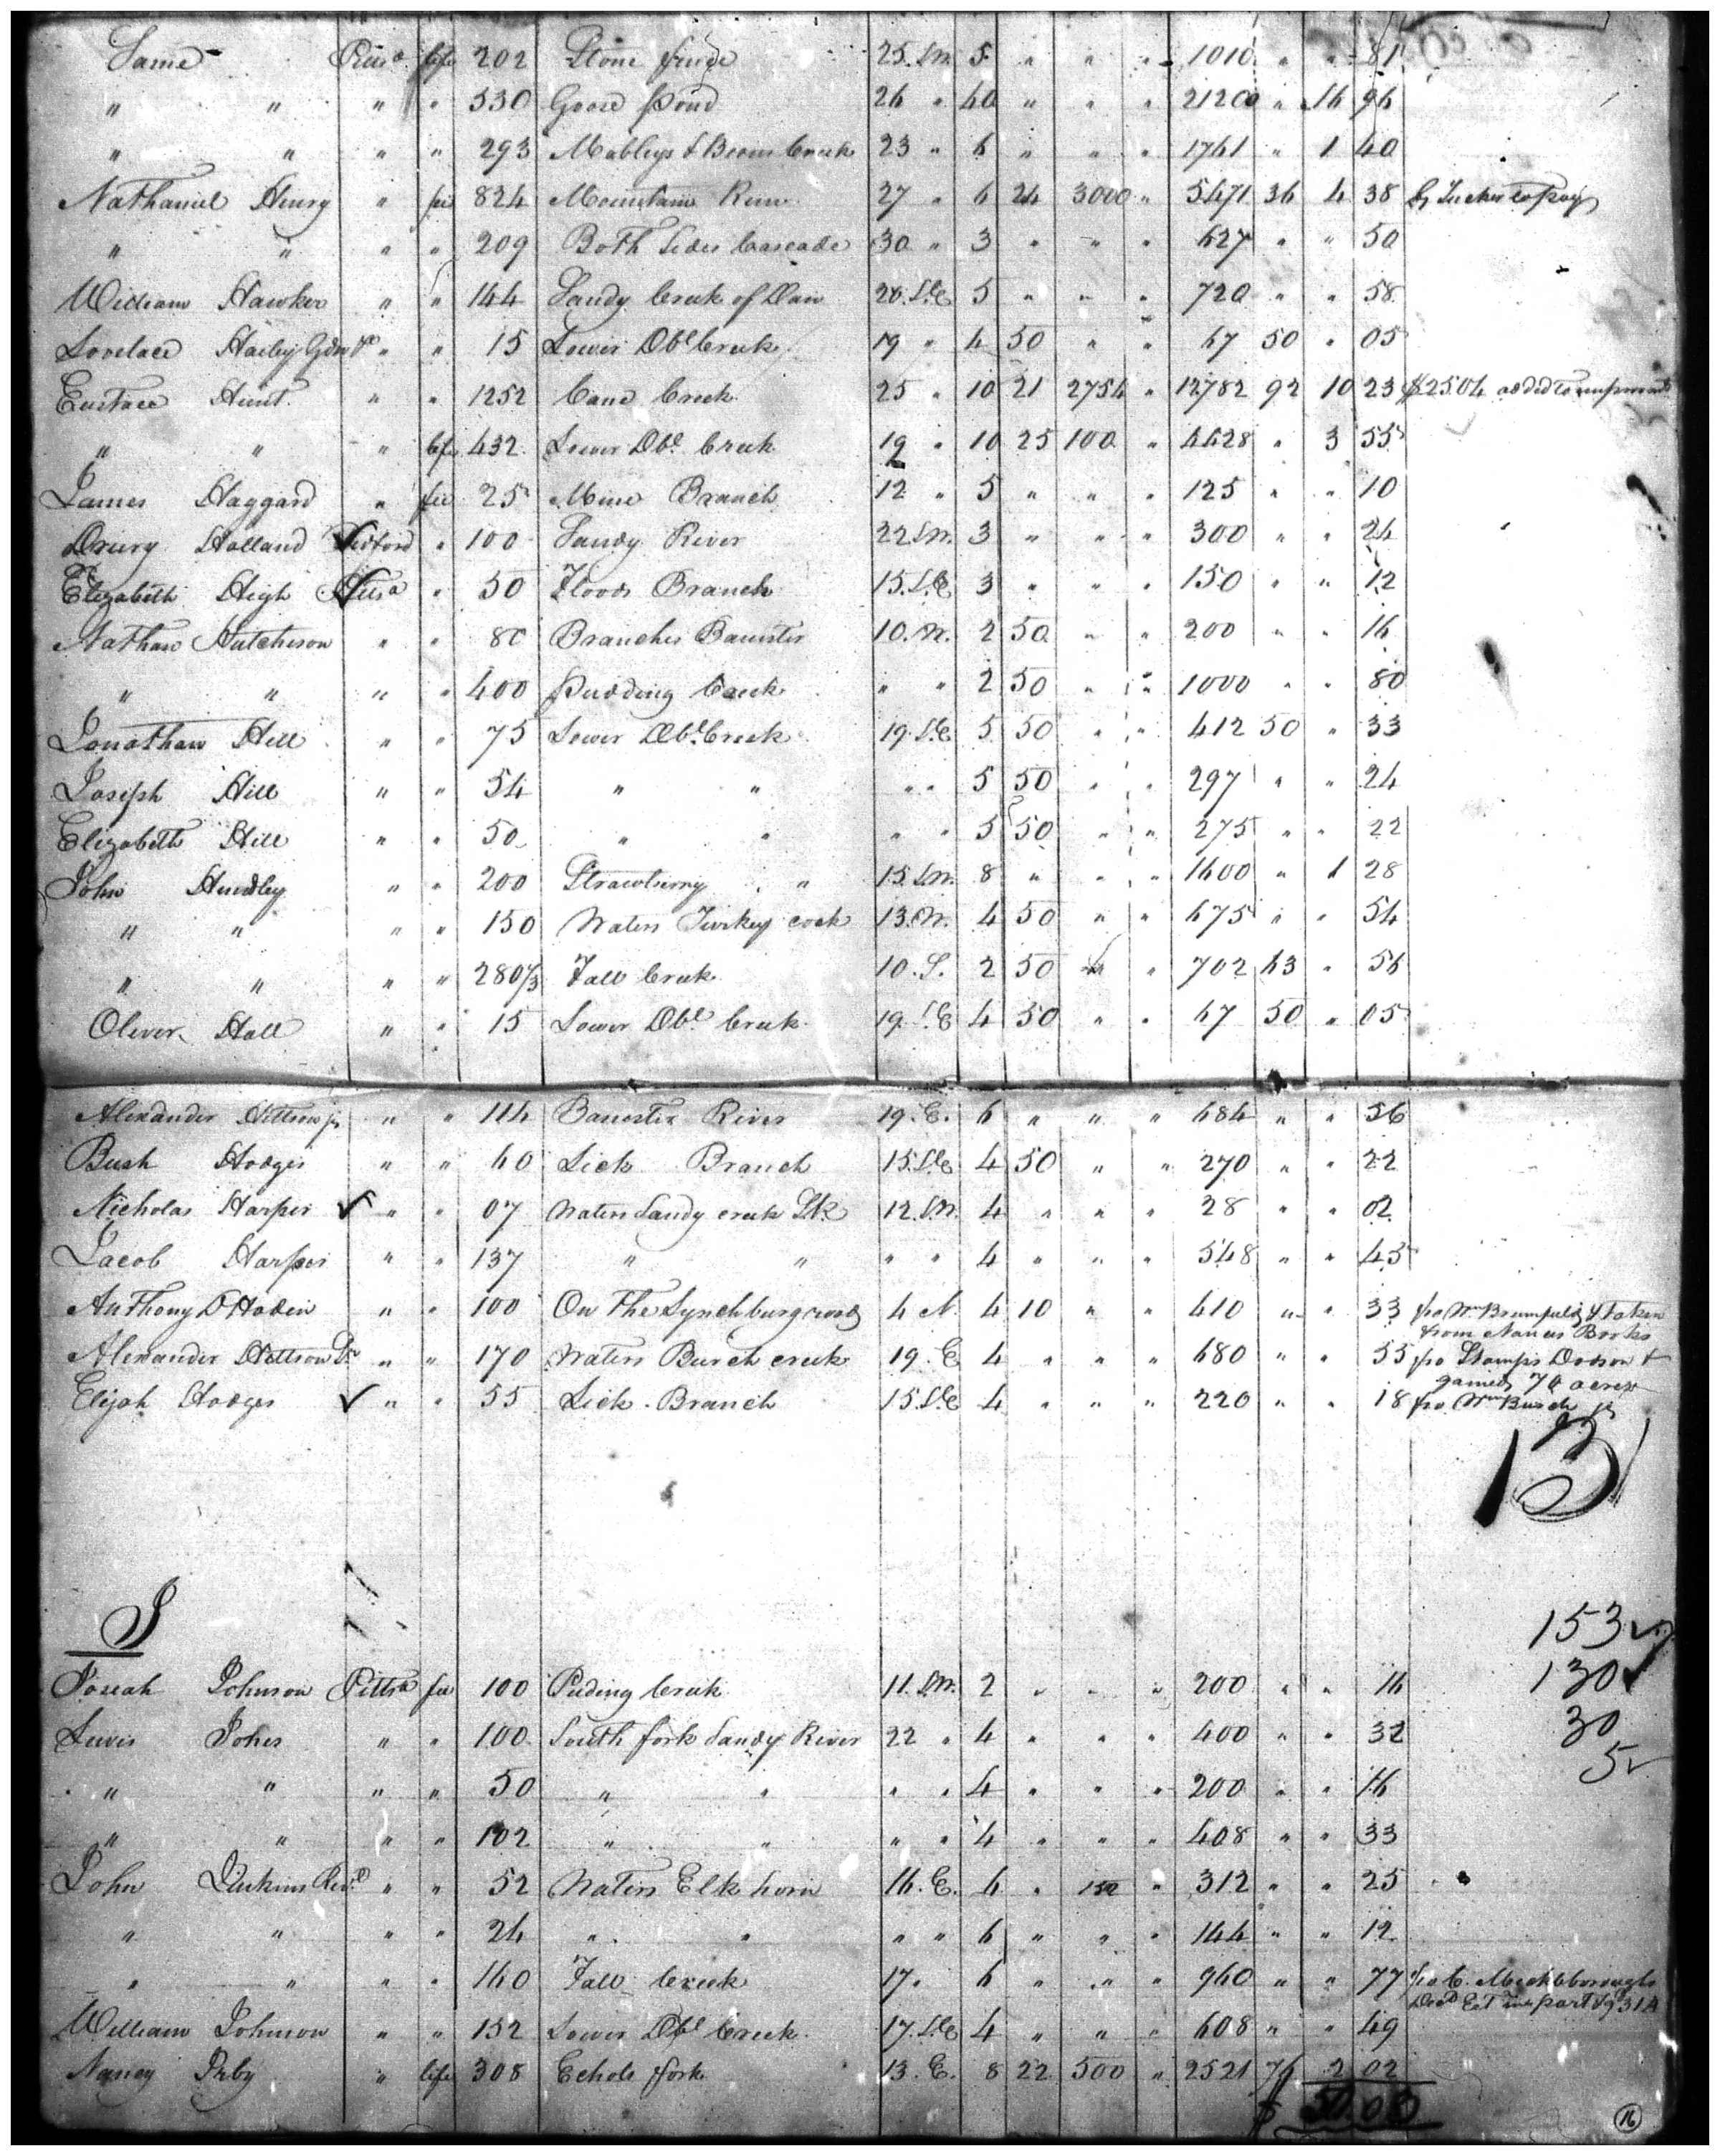 Same Pitts life 202 Stone fence 25 S.W. 5 " " " 1010 " " 81
" " " " 530 Goose pond 26 " 40 " " " 21200 " 16 96
" " " " 293 Mableys & Beans Creek 23 " 6 " " " 1761 " 1 40
Nathaniel Henry " fee 824 Mountain Run 27 " 6 24 3000 " 5471 36 4 38
" " " " 209 Both Sides Cascade 30 " 3 " " " 627 " " 50
William Hawker " " 144 Sandy Creek of Dan 20 S.E. 5 " " " 720 " " 58
Lovelace Hailey Gdn &c " " 15 Lower Dbl Creek 19 " 4 50 " " 67 50 " 05
Eustace Hunt " " 1252 Cane Creek 25 " 10 21 2754 " 12782 92 10 23 $2504 added to improvmt
" " " life 432 Lower Dbl Creek 19 " 10 25 100 " 4428 " 3 55
James Haggard " fee 25 Mine Branch 12 " 5 " " " 125 " " 10
Drury Holland Bedford " 100 Sandy River 22 S.W. 3 " " " 300 " " 24
Elizabeth High Pitts " 50 Floods Branch 15 S.E. 3 " " " 150 " " 12
Nathan Hutcheson " " 80 Branches Banister 10 W. 2 50 " " 200 " " 16
" " " " 400 Pudding Creek " " 2 50 " " 1000 " " 80
Jonathan Hill " " 75 Lower Dbl Creek 19 S.E. 5 50 " " 412 50 " 33
Joseph Hill " " 54 " " " " 5 50 " " 297 " " 24
Elizabeth Hill " " 50 " " " " 5 50 " " 275 " " 22
John Hundley " " 200 Strawberry " 15 S.W. 8 " " " 1600 " 1 28
" " " " 150 Waters Turkey cock 13 W. 4 50 " " 675 " " 54
" " " " 280 1/3 Fall Creek 10 S. 2 50 " " 702 63 " 56
Oliver Hall " " 15 Lower Dbl Creek 19 S.E 4 50 " " 67 50 " 05
Alexander Hittson jr " " 114 Banister River 19 E. 6 " " " 684 " " 56
Bush Hodges " " 60 Lick Branch 15 S.E 4 50 " " 270 " " 22
Nicholas Harper ✓ " " 07 Waters Sandy creek Stk 12 S.W. 4 " " " 28 " " 02
Jacob Harper " " 137 " " " " 4 " " " 548 " " 45
Anthony D Hoden " " 100 On The Lynchburg road 4 N. 4 10 " " 410 " " 33 fro Wm Brumfield & taken
from Nances Books
Alexander Hittson Sr " " 170 Waters Burch creek 19 E 4 " " " 680 " " 55 fro Stamps Dodson &
gained 70 acres
Elijah Hodges ✓ " " 55 Lick Branch 15 S.E 4 " " " 220 " " 18 fro Wm Burch jr
13
J
153 ✓
Joseah Johnson Pitts fee 100 Puding Creek 11 S.W. 2 " " " 200 " " 16 130 ✓
Lewis Jones " " 100 South fork Sandy River 22 " 4 " " " 400 " " 32 30
" " " " 50 " " " " 4 " " " 200 " " 16 5 ✓
" " " " 102 " " " " 4 " " " 408 " " 33
John Jenkins Revd " " 52 Waters Elk horn 16 E. 6 " 150 " 312 " " 25
" " " " 24 " " " " 6 " " " 144 " " 12
" " " " 160 Fall Creek 17 " 6 " " " 960 " " 77 fro C. Meckleborough
Decd Est in part of 314
William Johnson " " 152 Lower Dbl Creek 17 S.E 4 " " " 608 " " 49
Nancy Irby " life 308 Echols fork 13 E. 8 22 500 " 2521 76 2 02
$
16